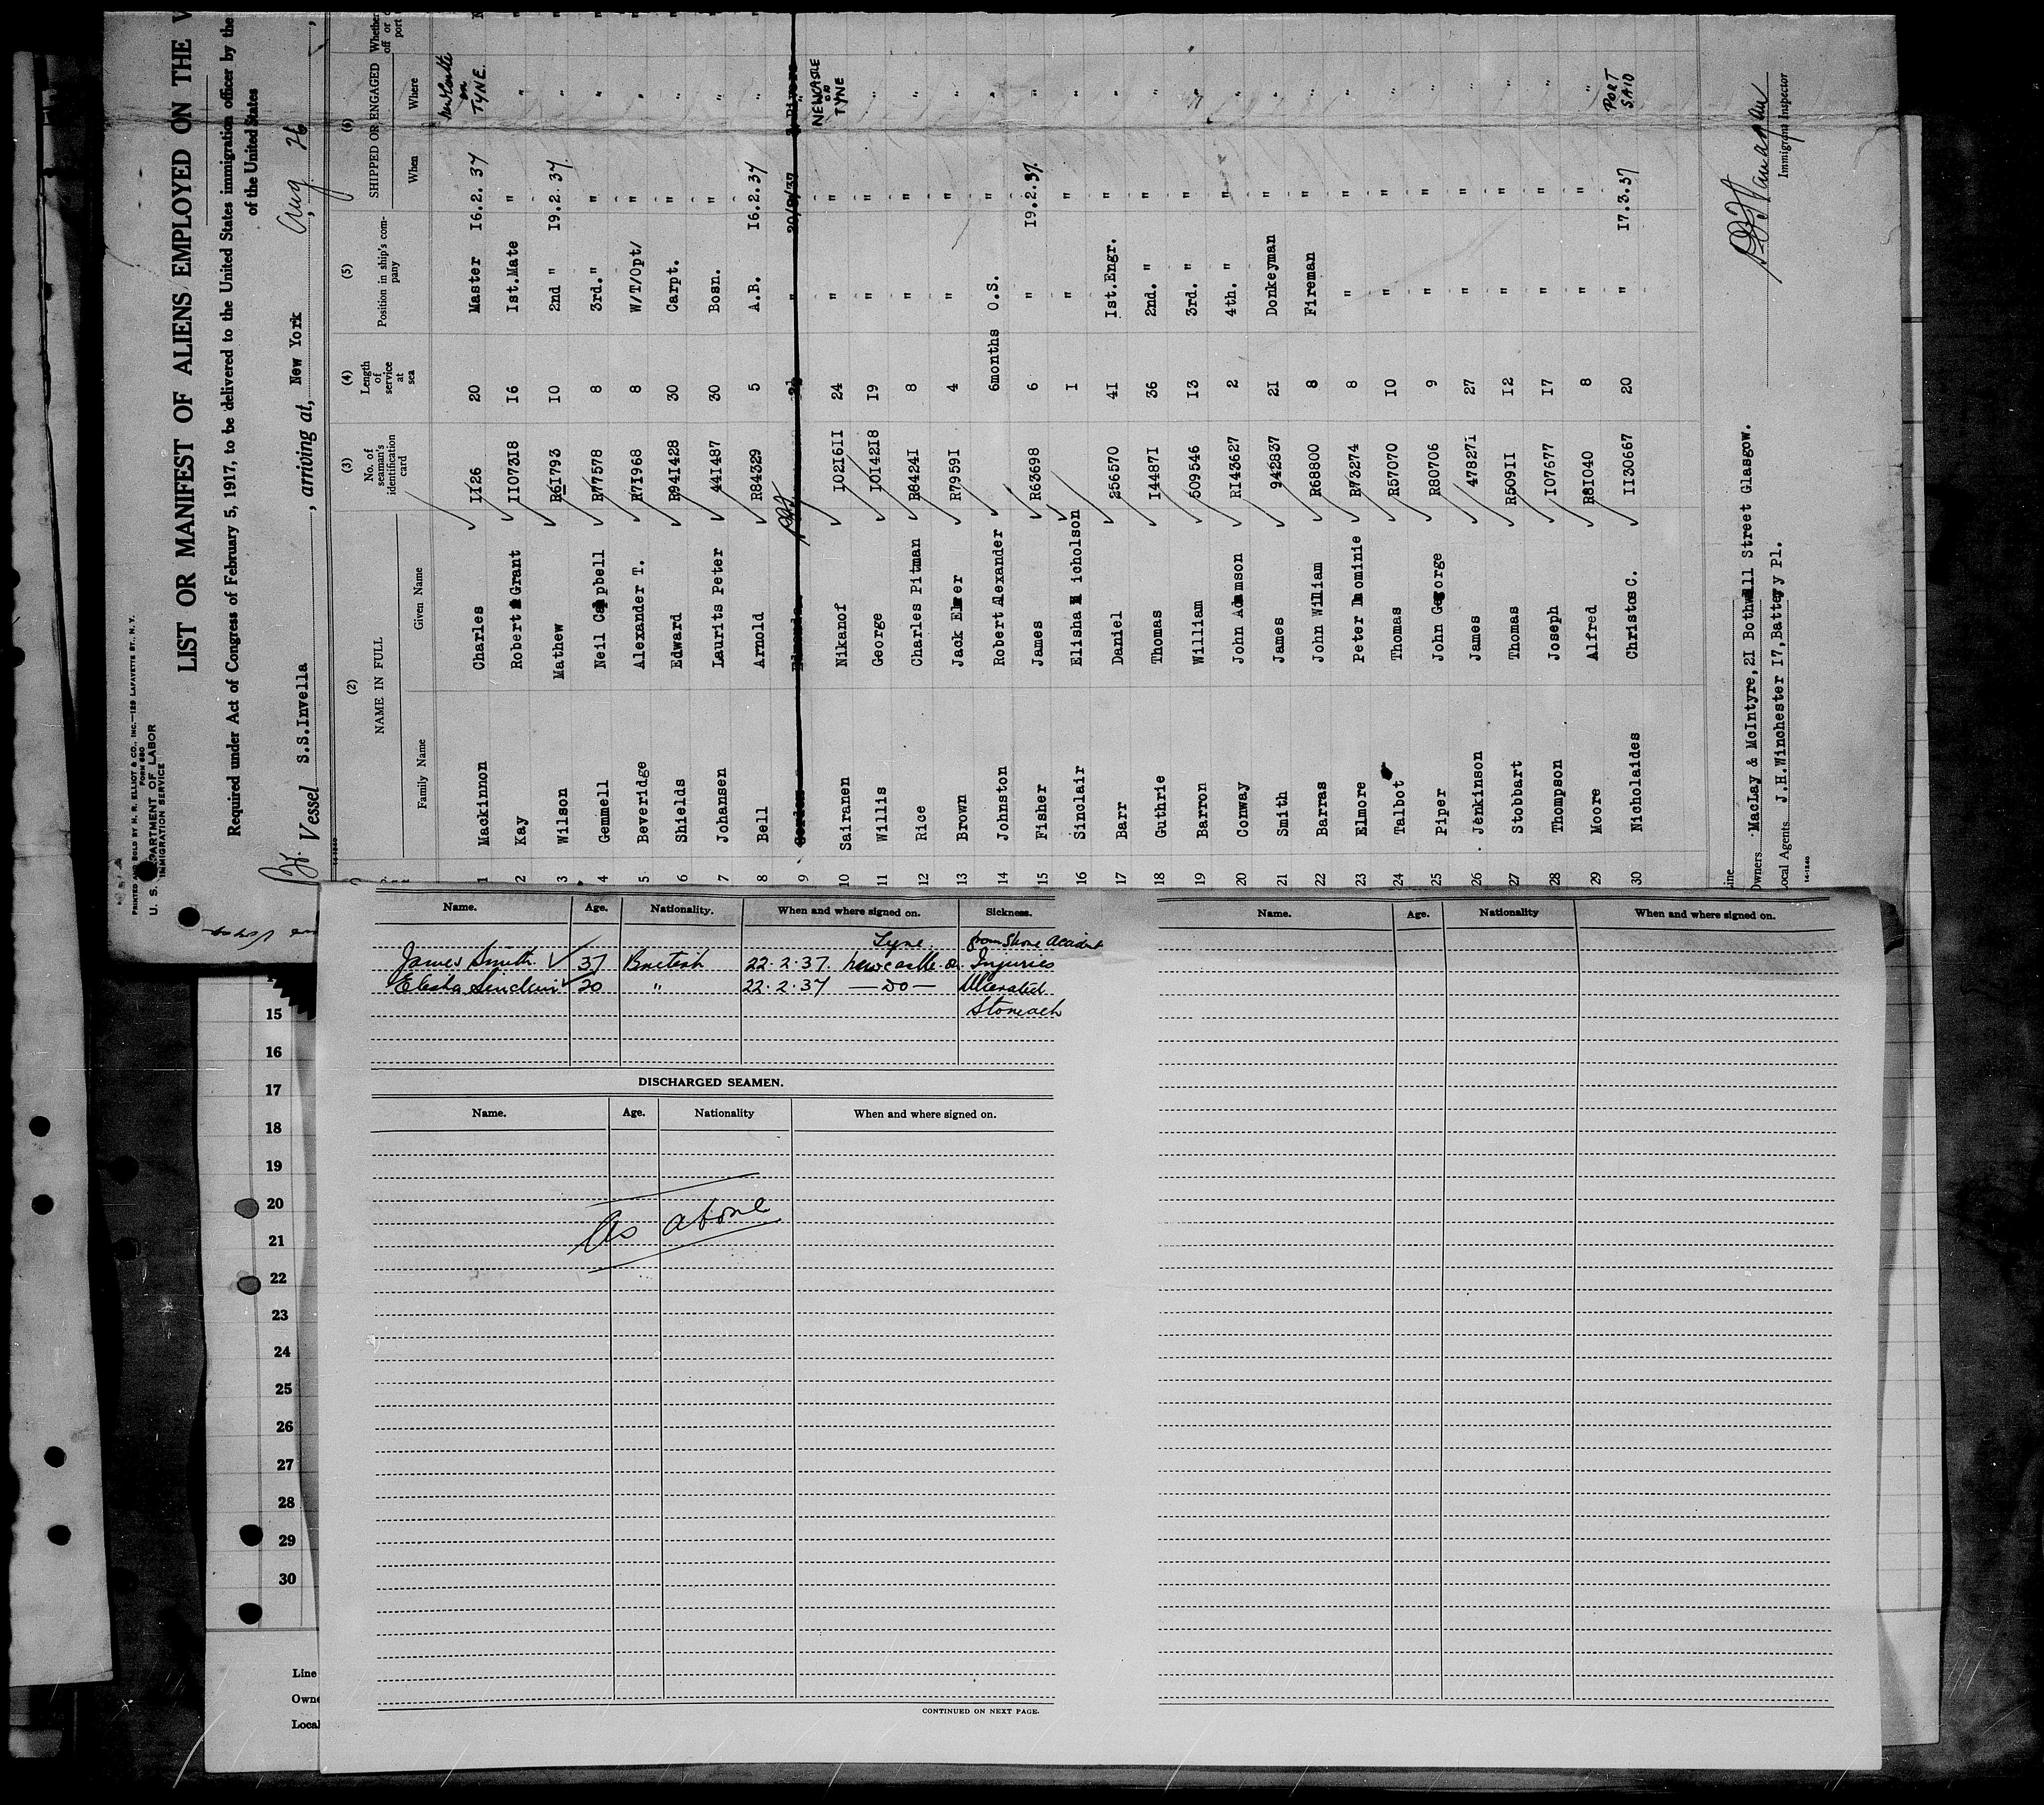 PRINTED AND SOLD BY H. R. ELLIOT & CO., INC.—129 LAFAYETTE ST., N.Y.
FORM 680
U. S. DEPARTMENT OF LABOR
IMMIGRATION SERVICE
LIST OR MANIFEST OF ALIENS EMPLOYED ON THE
Required under Act of Congress of February 5, 1917, to be delivered to the United States immigration officer by the
of the United States
Vessel S.S.Invella, arriving at, New York, Aug 26,
(2) (3) (4) (5) (6)
NAME IN FULL No. of seaman's identification card Length of service at sea Position in ship's company SHIPPED OR ENGAGED
Family Name Given Name When Where
1 Mackinnon Charles 1126 20 Master 16.2.37 Newcastle on TYNE.
2 Kay Robert Grant 1107318 16 1st.Mate " "
3 Wilson Mathew R61793 10 2nd " 19.2.37 "
4 Gemmell Neil Campbell R77578 8 3rd." " "
5 Beveridge Alexander T. R71968 8 W/T/Opt/ " "
6 Shields Edward R941428 30 Carpt. " "
7 Johansen Laurits Peter 441487 30 Bosn. " "
8 Bell Arnold R84329 5 A.B. 16.2.37 "
9 Gordon " 20/2/37
10 Sairanen Nikanof 1021611 24 " " NEWCASTLE ON TYNE
11 Willis George 1014218 19 " " "
12 Rice Charles Pitman R84241 8 " " "
13 Brown Jack Elmer R79591 4 " " "
14 Johnston Robert Alexander 6months O.S. " "
15 Fisher James R63698 6 " 19.2.37. "
16 Sinclair Elisha Nicholson 1 " " "
17 Barr Daniel 256570 41 1st.Engr. " "
18 Guthrie Thomas 144871 36 2nd. " " "
19 Barron William 509546 13 3rd. " " "
20 Conway John Adamson R143627 2 4th. " " "
21 Smith James 942837 21 Donkeyman " "
22 Barras John William R68800 8 Fireman " "
23 Elmore Peter Dominie R73274 8 " " "
24 Talbot Thomas R57070 10 " " "
25 Piper John George R80706 9 " " "
26 Jenkinson James 478271 27 " " "
27 Stobbart Thomas R50911 12 " " "
28 Thompson Joseph 107677 17 " " "
29 Moore Alfred R81040 8 " " "
30 Nicholaides Christos C. 1130667 20 " 17.3.37 PORT SAID
Line
Owners MacLay & McIntyre, 21 Bothwell Street Glasgow.
Local Agents J.H.Winchester 17, Battery Pl.
Immigrant Inspector
14-1240
Name. Age. Nationality. When and where signed on. Sickness.
Tyne. from Shore Accident
James Smith 37 British 22.2.37. Newcastle on Injuries
Elisha Sinclair 20 " 22.2.37 —DO— Ulcerated
Stomach
DISCHARGED SEAMEN.
Name. Age. Nationality When and where signed on.
As above
CONTINUED ON NEXT PAGE.
Name. Age. Nationality When and where signed on.
15
16
17
18
19
20
21
22
23
24
25
26
27
28
29
30
Line
Owne
Local